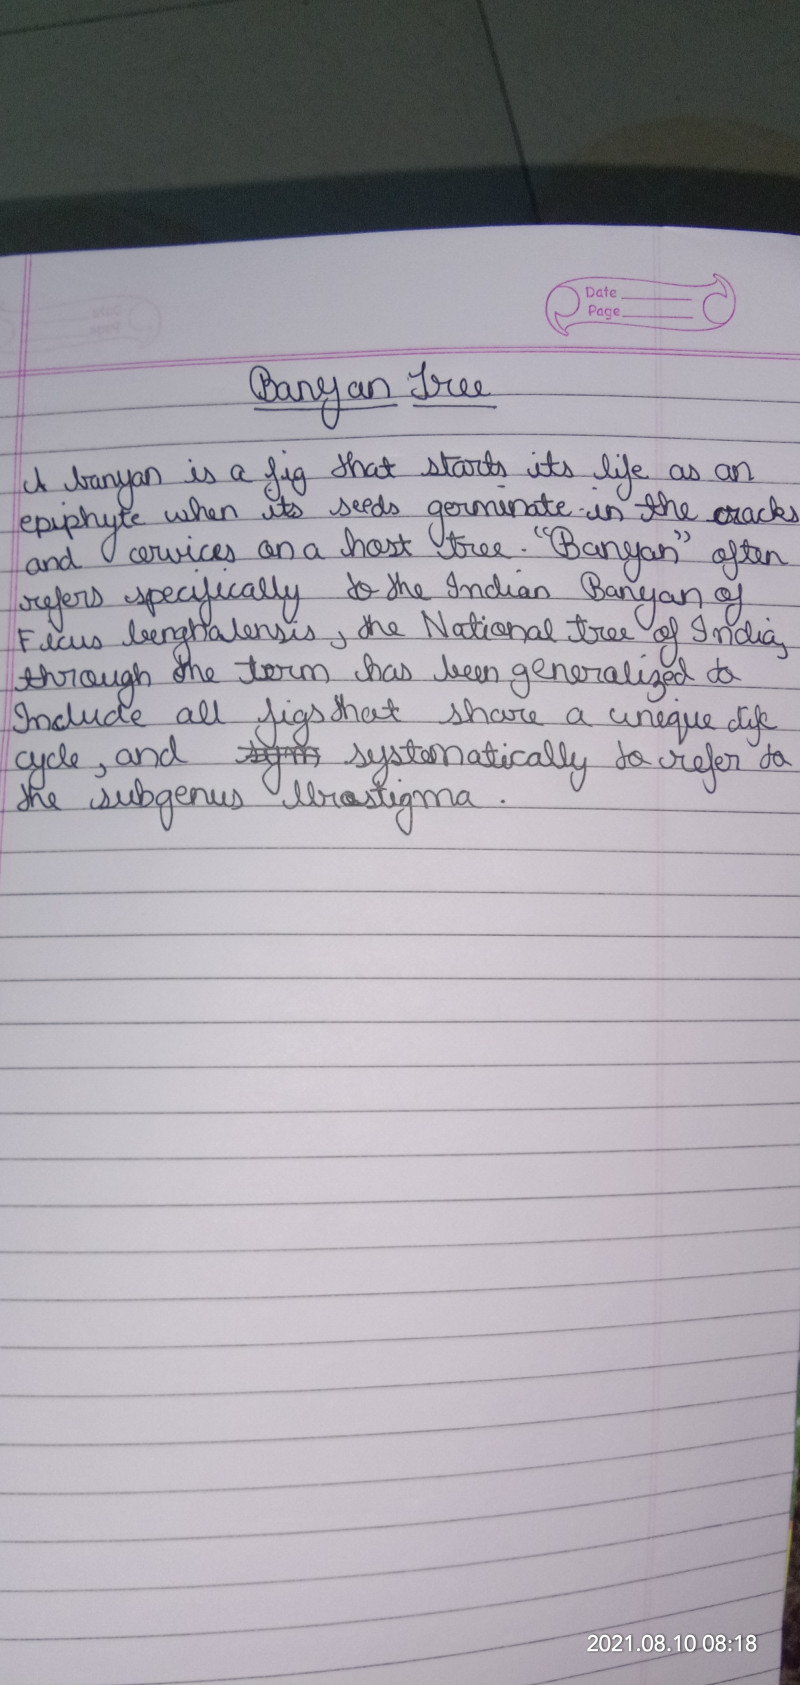 Date
Page
Banyan Tree
A banyan is a fig that starts its life as an
epiphyte when its seeds germinate in the cracks
and cervices on a host tree. "Banyan" often
refers specifically to the Indian Banyan of
Ficus benghalensis, the National tree of India,
through the term has been generalized to
Include all figs that share a uneque life
cycle, and systematically to refer to
the subgenus
2021.08.10 08:18